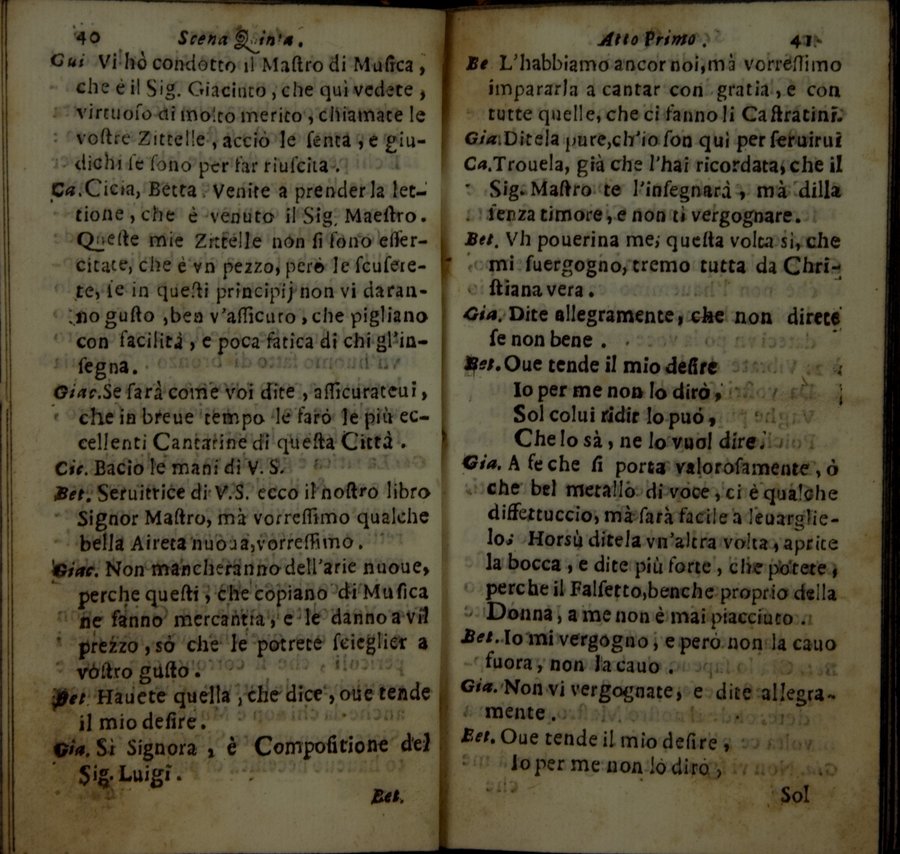 40 Scena Quinta.
Gui Vi hò condotto il Maſtro di Muſica,
che è il Sig. Giacinto, che qui vedete,
virtuoſo di molto merito, chiamate le
voſtre Zittelle, acciò le ſenta, e giu-
dichi ſe ſono per far riuſcita.
Ca. Cicia, Betta. Venite a prender la let-
tione, che è venuto il Sig. Maeſtro.
Queſte mie Zittelle non ſi ſono eſſer-
citate, che è vn pezzo, però le ſcuſere-
te, ſe in queſti principij non vi daran-
no guſto, ben v'aſſicuro, che pigliano
con facilità, e poca fatica di chi gl'in-
ſegna.
Giac. Se farà come voi dite, aſſicurateui,
che in breue tempo le farò le più ec-
cellenti Cantarine di queſta Città.
Cic. Bacio le mani di V. S.
Bet. Seruittrice di V.S. ecco il noſtro libro
Signor Maſtro, mà vorreſſimo qualche
bella Aireta nuoua, vorreſſimo.
Giac. Non mancheranno dell'arie nuoue,
perche queſti, che copiano di Muſica
ne fanno mercantia, e le danno a vil
prezzo, sò che le potrete ſcieglier a
voſtro guſto.
Bet Hauete quella, che dice, oue tende
il mio deſire.
Gia. Sì Signora, è Compoſitione del
Sig. Luigi.
Bet.
Atto Primo. 41
Be L'habbiamo ancor noi, mà vorreſſimo
impararla a cantar con gratia, e con
tutte quelle, che ci fanno li Caſtratini.
Gia. Ditela pure, ch'io ſon qui per ſeruirui
Ca. Trouela, già che l'hai ricordata, che il
Sig. Maſtro te l'inſegnarà, mà dilla
ſenza timore, e non ti vergognare.
Bet. Vh pouerina me, queſta volta sì, che
mi ſuergogno, tremo tutta da Chri-
ſtiana vera.
Gia. Dite allegramente, che non direte
ſe non bene.
Bet. Oue tende il mio deſire
Io per me non lo dirò,
Sol colui ridir lo può,
Che lo sà, ne lo vuol dire.
Gia. A fe che ſi porta valoroſamente, ò
che bel metallo di voce, ci è qualche
diffettuccio, mà ſarà facile a leuarglie-
lo: Horsù ditela vn'altra volta, aprite
la bocca, e dite più forte, che potete,
perche il Falſetto, benche proprio della
Donna, a me non è mai piacciuto.
Bet. Io mi vergogno, e però non la cauo
fuora, non la cauo.
Gia. Non vi vergognate, e dite allegra-
mente.
Bet. Oue tende il mio deſire,
Io per me non lo dirò,
Sol